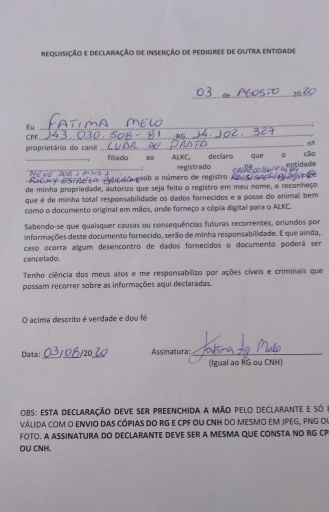 REQUISIÇÃO E DECLARAÇÃO DE INSERÇÃO DE PEDIGREE DE OUTRA ENTIDADE
03 de AGOSTO 2020
Eu FATIMA MELO
CPF 143.030.508-81 ;RG 14.102.327
proprietário do canil LUAR DE PRATA nº
, filiado ao ALKC, declaro que o cão
registrado na entidade
sob o número de registro
de minha propriedade, autorizo que seja feito o registro em meu nome, e reconheço
que é de minha total responsabilidade os dados fornecidos e a posse do animal bem
como o documento original em mãos, onde forneço a cópia digital para o ALKC.
Sabendo-se que quaisquer causas ou consequências futuras recorrentes, oriundos por
informações deste documento fornecido, serão de minha responsabilidade. E que ainda,
caso ocorra algum desencontro de dados fornecidos o documento poderá ser
cancelado.
Tenho ciência dos meus atos e me responsabilizo por ações cíveis e criminais que
possam recorrer sobre as informações aqui declaradas.
O acima descrito é verdade e dou fé
Data: 03/08/2020 Assinatura: Fatima Melo
(Igual ao RG ou CNH)
OBS: ESTA DECLARAÇÃO DEVE SER PREENCHIDA A MÃO PELO DECLARANTE E SÓ É
VÁLIDA COM O ENVIO DAS CÓPIAS DO RG E CPF OU CNH DO MESMO EM JPEG, PNG OU
FOTO. A ASSINATURA DO DECLARANTE DEVE SER A MESMA QUE CONSTA NO RG CPF
OU CNH.